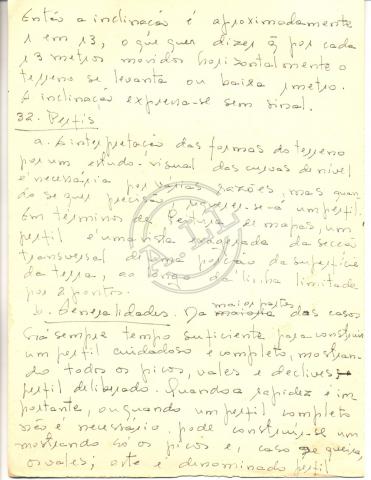 Então a inclinação é aproximadamente
1 em 13, o que quer dizer q̃ por cada
13 metros movidos horizontalmente o
terreno se levanta ou baixa 1 metro.
A inclinação expressa-se sem sinal.
32. Perfis
a. A interpretação das formas do terreno
por um estudo visual das curvas de nível
é necessária por várias razões, mas quan
do se quer precisão, requerer-se-á um perfil.
Em términos de leitura de mapas, um
perfil é uma vista exagerada da secção
transversal de uma porção da superfície
da terra, ao longo da linha limitada
por 2 pontos.
b. Generalidades. Na maior parte dos casos
há sempre tempo suficiente para construir
um perfil cuidadoso e completo, mostran-
do todos os picos, vales e declives;
perfil deliberado. Quando a rapidez é im
portante, ou quando um perfil completo
não é necessário, pode construir-se um
mostrando só os picos e, caso se queira,
os vales; este é denominado perfil